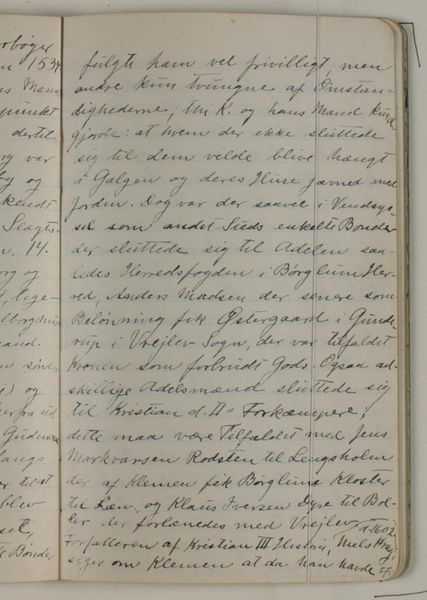 fulgte ham vel frivilligt, men
andre kun tvungne af Omstæn-
dighederne; thi K. og hans Mænd kund
gjorde: at hvem der ikke sluttede
sig til dem vilde blive hængt
i Galgen og deres Huse jævned med
Jorden. Dog var der saavel i Vendsys-
sel som andet Steds enkelte Bønder
der sluttede sig til Adelen saa-
ledes Herredsfogden i Børglum Her-
red, Anders Madsen der senere som
Belønning fik Østergaard i Gunde
rup i Vrejlev Sogn, der var tilfaldet
Kronen som forbrudt Gods. Ogsaa ad-
skillige Adelsmænd sluttede sig
til Kristian d. II's Forkæmpere;
dette maa være Tilfældet med Jens
Markvarsen Rodsten til Lengsholm
der af Klemen fik Børglum Kloster
til Læn, og Klaus Iversen Dyre til Bol-
ler der forlænedes med Vrejlev
d. 1602
Forfatteren af Kristian III Historie, Niels Krag
siger om Klemen at da han havde
rbøger
1534
Mænd
punkt
dertil
var
og
kendt
Slags-
14.
og
lige-
og
blev
Bønder